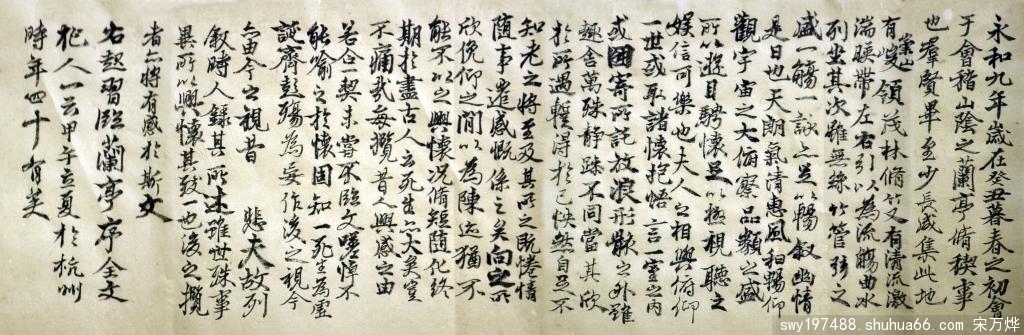 永和九年歲在癸丑暮春之初會
于會稽山陰之蘭亭脩稧事
也羣賢畢至少長咸集此地
有崇山峻領茂林脩竹又有清流激
湍暎帶左右引以為流觴曲水
列坐其次雖無絲竹管弦之
盛一觴一詠亦足以暢叙幽情
是日也天朗氣清惠風和暢仰
觀宇宙之大俯察品類之盛
所以遊目騁懷足以極視聽之
娛信可樂也夫人之相與俯仰
一世或取諸懷抱悟言一室之內
或因寄所託放浪形骸之外雖
趣舍萬殊静躁不同當其欣
於所遇輙得於己怏然自足不
知老之將至及其所之既惓情
随事遷感慨係之矣向之所
欣俛仰之閒以為陳迹猶不
能不以之興懷况脩短随化終
期於盡古人云死生亦大矣豈
不痛哉每攬昔人興感之由
若合一契未嘗不臨文嗟悼不
能喻之於懷固知一死生為虛
誕齊彭殤為妄作後之視今
亦由今之視昔 悲夫故列
叙時人錄其所述雖世殊事
異所以興懷其致一也後之攬
者亦將有感於斯文
右習臨蘭亭序全文
人一云甲午立夏於杭州
時年四十有
swy197488.shuhua66.com 宋万烨